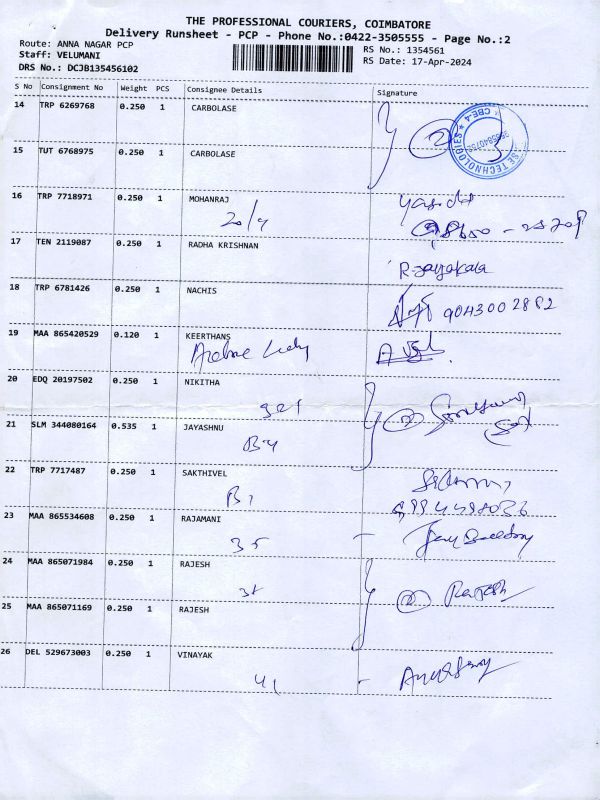 THE PROFESSIONAL COURIERS, COIMBATORE
Delivery Runsheet - PCP - Phone No.:0422-3505555 - Page No.:2
Route: ANNA NAGAR PCP
Staff: VELUMANI
DRS No.: DCJB135456102
RS No.: 1354561
RS Date: 17-Apr-2024
S No Consignment No Weight PCS Consignee Details Signature
14 TRP 6269768 0.250 1 CARBOLASE
2
SE TECHNOLOGIES ★ CBE-4 ★
15 TUT 6768975 0.250 1 CARBOLASE
16 TRP 7718971 0.250 1 MOHANRAJ
20/4
17 TEN 2119087 0.250 1 RADHA KRISHNAN
R. Jayakala
18 TRP 6781426 0.250 1 NACHIS
9043002882
19 MAA 865420529 0.120 1 KEERTHANS
20 EDQ 20197502 0.250 1 NIKITHA
321
2
21 SLM 344080164 0.535 1 JAYASHNU
B4
22 TRP 7717487 0.250 1 SAKTHIVEL
B1
23 MAA 865534608 0.250 1 RAJAMANI
35
24 MAA 865071984 0.250 1 RAJESH
2 Rajesh
25 MAA 865071169 0.250 1 RAJESH
26 DEL 529673003 0.250 1 VINAYAK
41